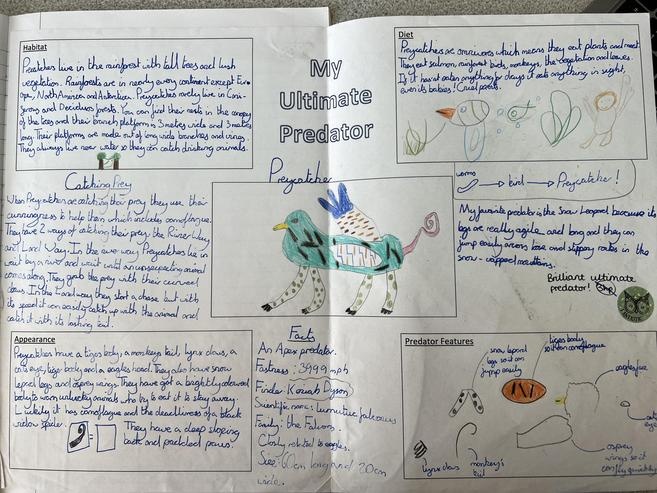 Habitat
Preycatchers live in the rainforest with tall trees and lush
vegetation. Rainforests are in nearly every continent except Eur-
ope, North America and Antarctica. Preycatchers rarely live in Coni-
ferous and Deciduous forests. You can find their nests in the canopy
of the trees and their branch platform is 3 metres wide and 3 metres
long. Their platforms are made out of long wide branches and vines.
They always live near water so they can catch drinking animals.
My
Ultimate
Predator
Diet
Preycatchers are omnivores which means they eat plants and meat.
They eat salmon, rainforest birds, monkeys, the vegetation and leaves.
If it hasn't eaten anything for days it eats anything in sight,
even its babies! Cruel parents.
worms
bird
Preycatcher!
Catching Prey
When Preycatchers are catching their prey they use their
cunningness to help them which includes camouflague.
They have 2 ways of catching their prey, the River Way
and Land Way. In the river way Preycatchers lie in
wait by a river and wait until an unsuspecting animal
comes along. They grab the prey with their curved
claws. In the Land way they start a chase but with
its speed it can easily catch up with the animal and
catch it with its
Preycatcher
My favourite predator is the Snow Leopard because its
legs are really agile and long and they can
jump easily across bare and slippy rocks in the
snow-capped mountains.
Brilliant ultimate
predator!
Appearance
Preycatchers have a tigers body, a monkeys tail, lynx claws, a
cats eye, tigers body and a eagles head. They also have snow
leopard legs and osprey wings. They have got a brightly coloured
body to warn unlucky animals who try to eat it to stay away.
Luckily it has camouflague and the deadliness of a black
widow spider.
They have a deep sloping
back and padded paws.
Facts
An Apex predator.
Fastness: 3999 mph
Finder
Scientific name:
Family: the Falcons.
Closly related to eagles.
Size: 60cm long and 20cm
wide.
Predator Features
snow leopard
legs so it can
jump easily
tigers body
so it can camouflague
eagles face
cats
eye
osprey
wings so it
can fly quickly
lynx claws
monkey's
tail